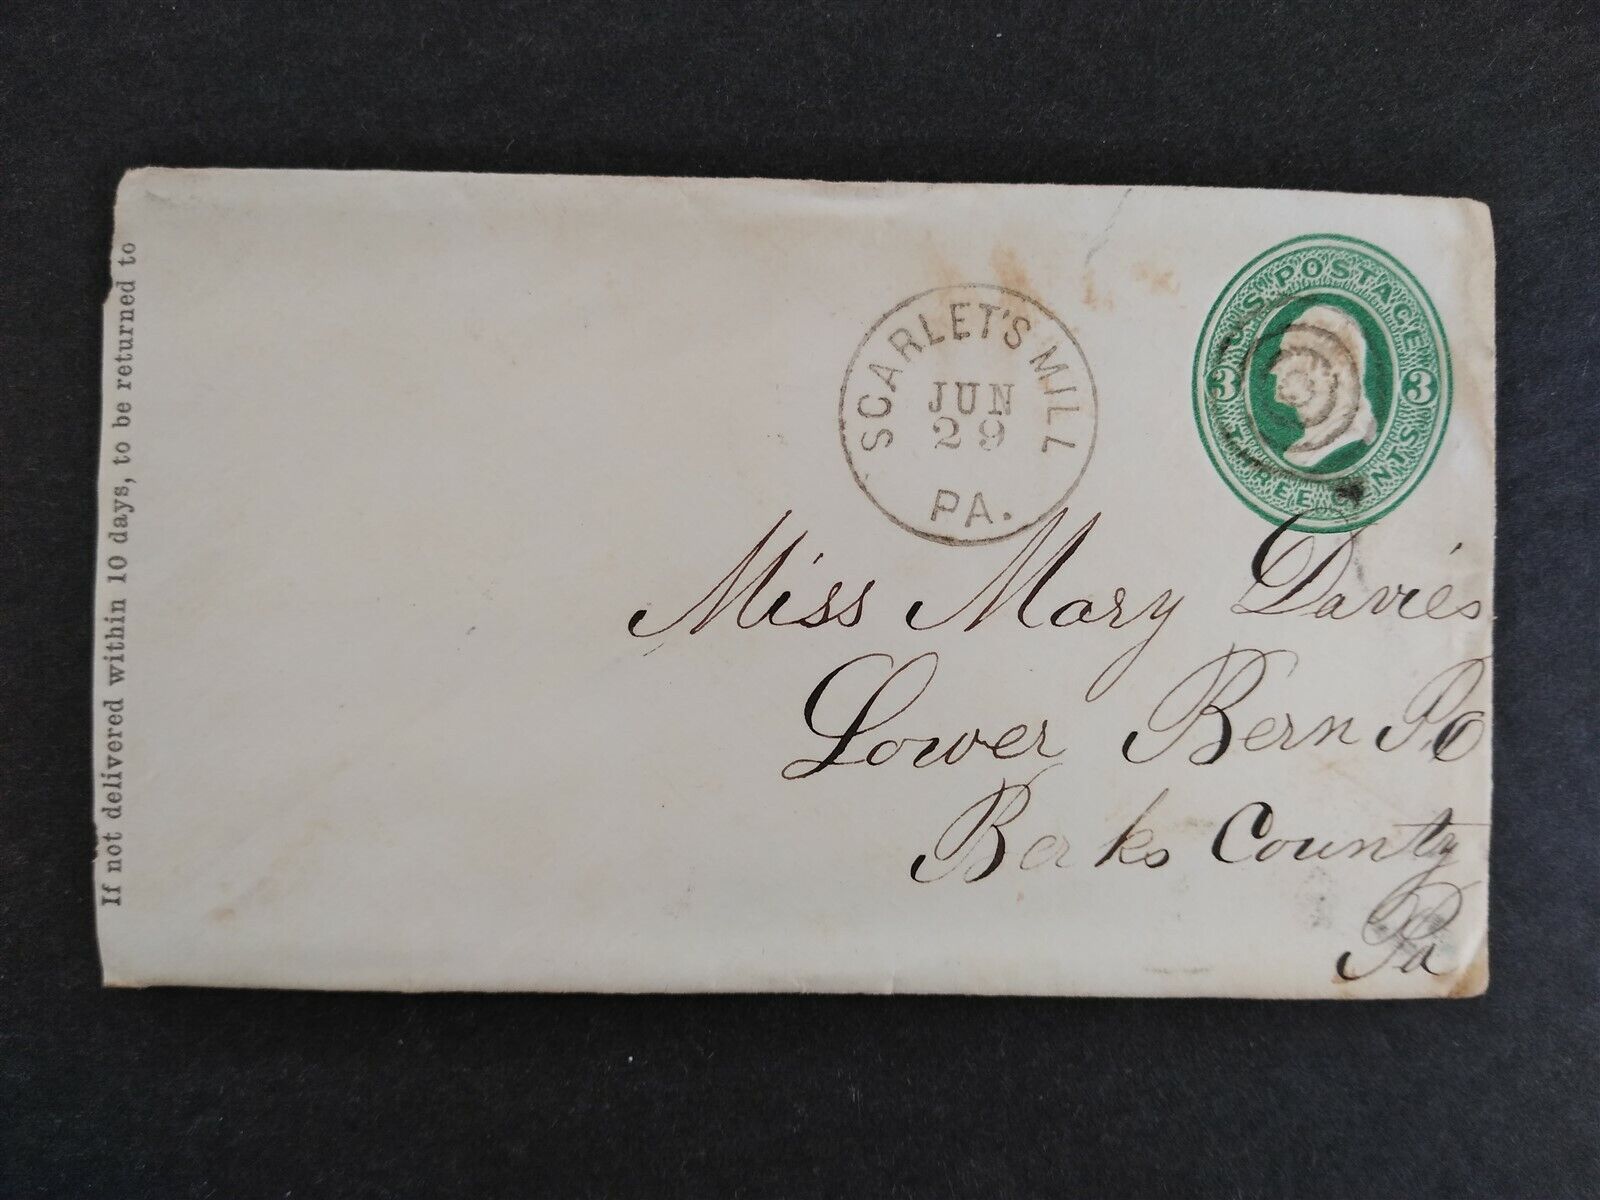 If not delivered within 10 days, to be returned to
SCARLET'S MILL
JUN
29
PA.
U.S. POSTAGE
3 3
THREE CENTS
Miss Mary Davies
Lower Bern P.O
Berks County
Pa